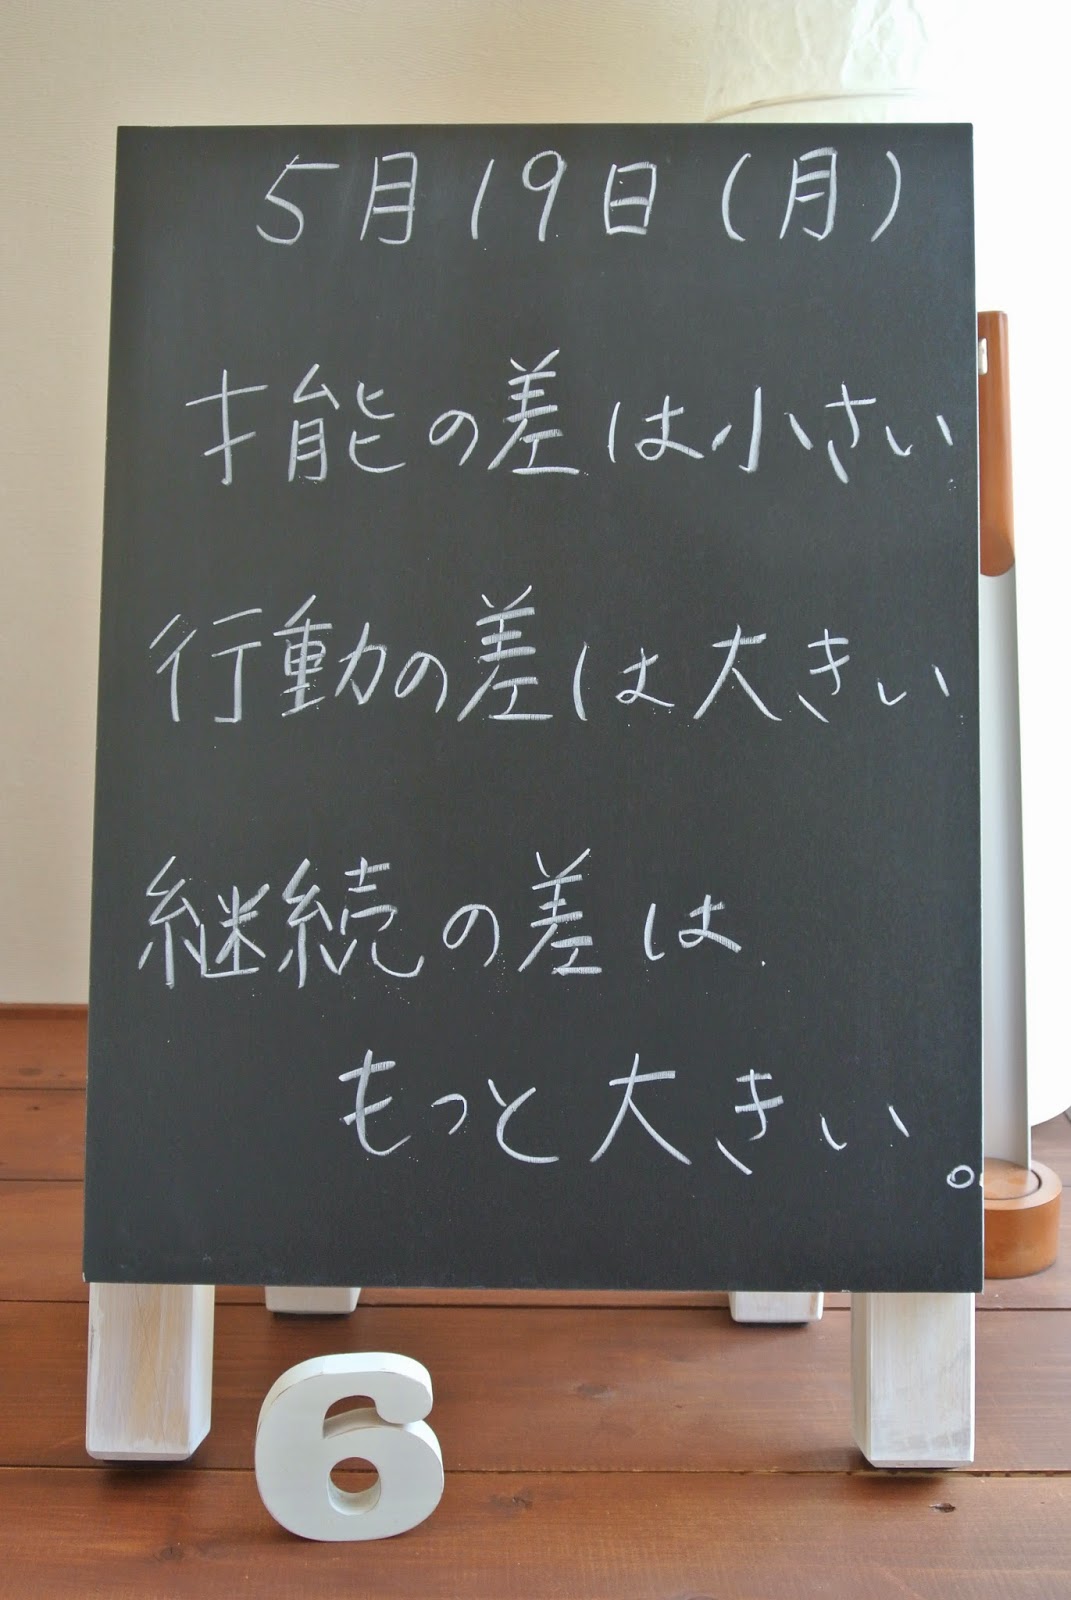 5月19日(月)
才能の差は小さい
行動の差は大きい
継続の差は
もっと大きい。
6